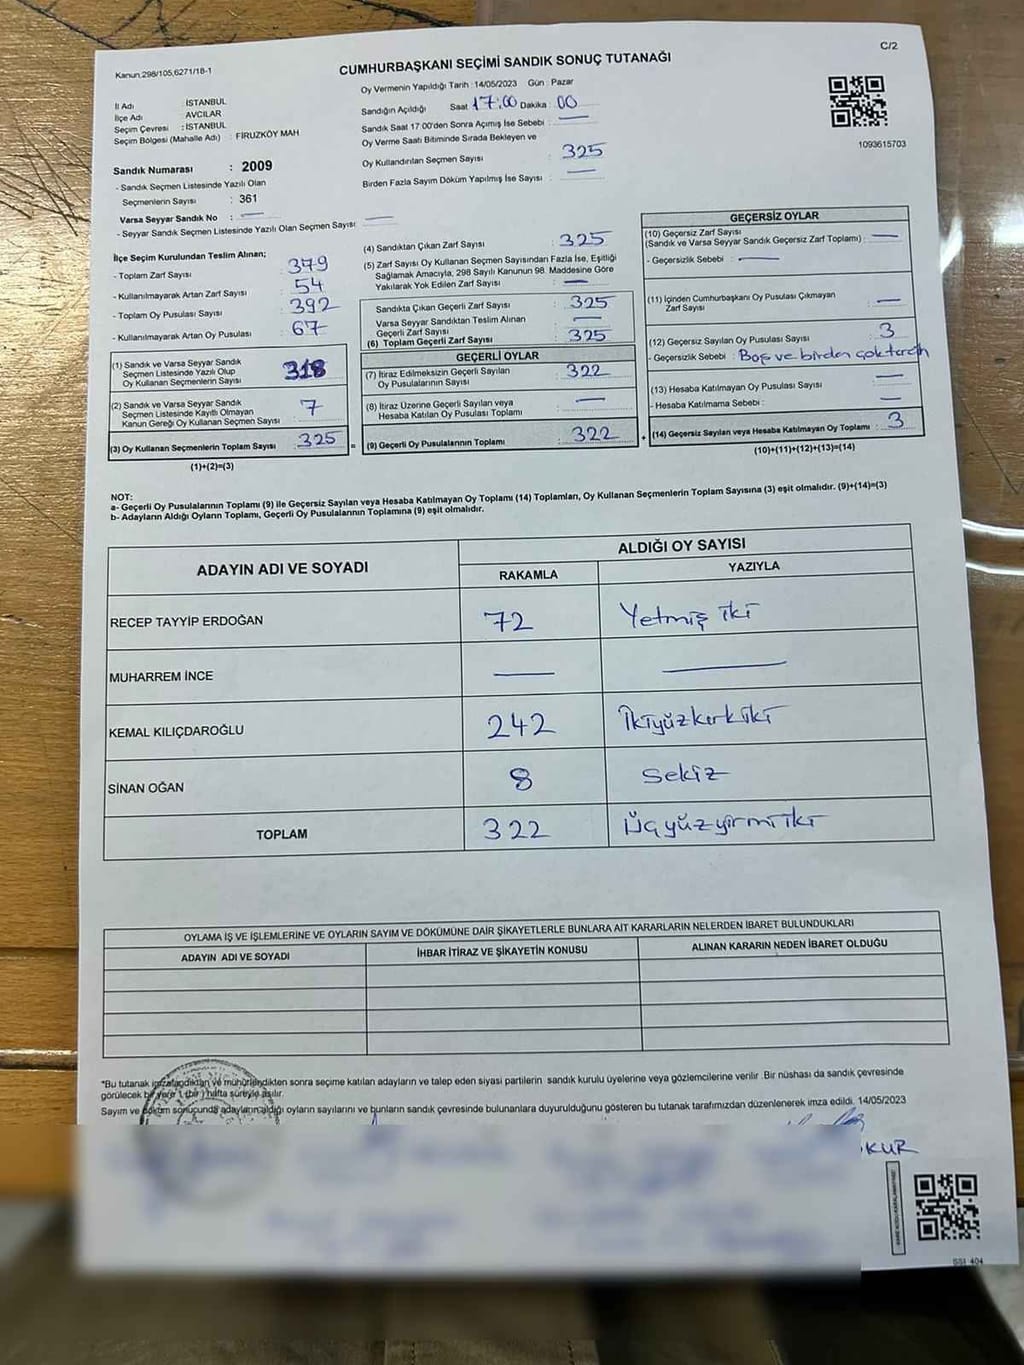 Kanun,298/105,6271/18-1
CUMHURBAŞKANI SEÇİMİ SANDIK SONUÇ TUTANAĞI
C/2
1093615703
İl Adı : İSTANBUL
İlçe Adı : AVCILAR
Seçim Çevresi : İSTANBUL
Seçim Bölgesi (Mahalle Adı) : FİRUZKÖY MAH
Sandık Numarası : 2009
- Sandık Seçmen Listesinde Yazılı Olan
Seçmenlerin Sayısı : 361
Varsa Seyyar Sandık No :
- Seyyar Sandık Seçmen Listesinde Yazılı Olan Seçmen Sayısı :
Oy Vermenin Yapıldığı Tarih : 14/05/2023 Gün : Pazar
Sandığın Açıldığı Saat 17:00 Dakika : 00
Sandık Saat 17 00'den Sonra Açımış İse Sebebi :
Oy Verme Saati Bitiminde Sırada Bekleyen ve
Oy Kullandırılan Seçmen Sayısı : 325
Birden Fazla Sayım Döküm Yapılmış İse Sayısı :
İlçe Seçim Kurulundan Teslim Alınan;
- Toplam Zarf Sayısı : 379
- Kullanılmayarak Artan Zarf Sayısı : 54
- Toplam Oy Pusulası Sayısı : 392
- Kullanılmayarak Artan Oy Pusulası : 67
(1) Sandık ve Varsa Seyyar Sandık
Seçmen Listesinde Yazılı Olup
Oy Kullanan Seçmenlerin Sayısı : 318
(2) Sandık ve Varsa Seyyar Sandık
Seçmen Listesinde Kayıtlı Olmayan
Kanun Gereği Oy Kullanan Seçmen Sayısı : 7
(3) Oy Kullanan Seçmenlerin Toplam Sayısı : 325 =
(1)+(2)=(3)
(4) Sandıktan Çıkan Zarf Sayısı : 325
(5) Zarf Sayısı Oy Kullanan Seçmen Sayısından Fazla İse, Eşitliği
Sağlamak Amacıyla, 298 Sayılı Kanunun 98. Maddesine Göre
Yakılarak Yok Edilen Zarf Sayısı :
Sandıkta Çıkan Geçerli Zarf Sayısı : 325
Varsa Seyyar Sandıktan Teslim Alınan
Geçerli Zarf Sayısı :
(6) Toplam Geçerli Zarf Sayısı : 325
GEÇERLİ OYLAR
(7) İtiraz Edilmeksizin Geçerli Sayılan
Oy Pusulalarının Sayısı : 322
(8) İtiraz Üzerine Geçerli Sayılan veya
Hesaba Katılan Oy Pusulası Toplamı :
(9) Geçerli Oy Pusulalarının Toplamı : 322 +
GEÇERSİZ OYLAR
(10) Geçersiz Zarf Sayısı
(Sandık ve Varsa Seyyar Sandık Geçersiz Zarf Toplamı) :
- Geçersizlik Sebebi :
(11) İçinden Cumhurbaşkanı Oy Pusulası Çıkmayan
Zarf Sayısı :
(12) Geçersiz Sayılan Oy Pusulası Sayısı : 3
- Geçersizlik Sebebi : Boş ve birden çok tercih
(13) Hesaba Katılmayan Oy Pusulası Sayısı :
- Hesaba Katılmama Sebebi :
(14) Geçersiz Sayılan veya Hesaba Katılmayan Oy Toplamı : 3
(10)+(11)+(12)+(13)=(14)
NOT:
a- Geçerli Oy Pusulalarının Toplamı (9) ile Geçersiz Sayılan veya Hesaba Katılmayan Oy Toplamı (14) Toplamları, Oy Kullanan Seçmenlerin Toplam Sayısına (3) eşit olmalıdır. (9)+(14)=(3)
b- Adayların Aldığı Oyların Toplamı, Geçerli Oy Pusulalarının Toplamına (9) eşit olmalıdır.
ADAYIN ADI VE SOYADI
ALDIĞI OY SAYISI
RAKAMLA YAZIYLA
RECEP TAYYİP ERDOĞAN 72 Yetmiş iki
MUHARREM İNCE
KEMAL KILIÇDAROĞLU 242 İkiyüzkırkiki
SİNAN OĞAN 8 sekiz
TOPLAM 322 Üçyüzyirmiiki
OYLAMA İŞ VE İŞLEMLERİNE VE OYLARIN SAYIM VE DÖKÜMÜNE DAİR ŞİKAYETLERLE BUNLARA AİT KARARLARIN NELERDEN İBARET BULUNDUKLARI
ADAYIN ADI VE SOYADI İHBAR İTİRAZ VE ŞİKAYETİN KONUSU ALINAN KARARIN NEDEN İBARET OLDUĞU
*Bu tutanak imzalandıktan ve mühürlendikten sonra seçime katılan adayların ve talep eden siyasi partilerin sandık kurulu üyelerine veya gözlemcilerine verilir .Bir nüshası da sandık çevresinde
görülecek bir yere 1 (bir) hafta süreyle asılır.
Sayım ve döküm sonucunda adayların aldığı oyların sayılarını ve bunların sandık çevresinde bulunanlara duyurulduğunu gösteren bu tutanak tarafımızdan düzenlenerek imza edildi. 14/05/2023
KUR
SSI 404